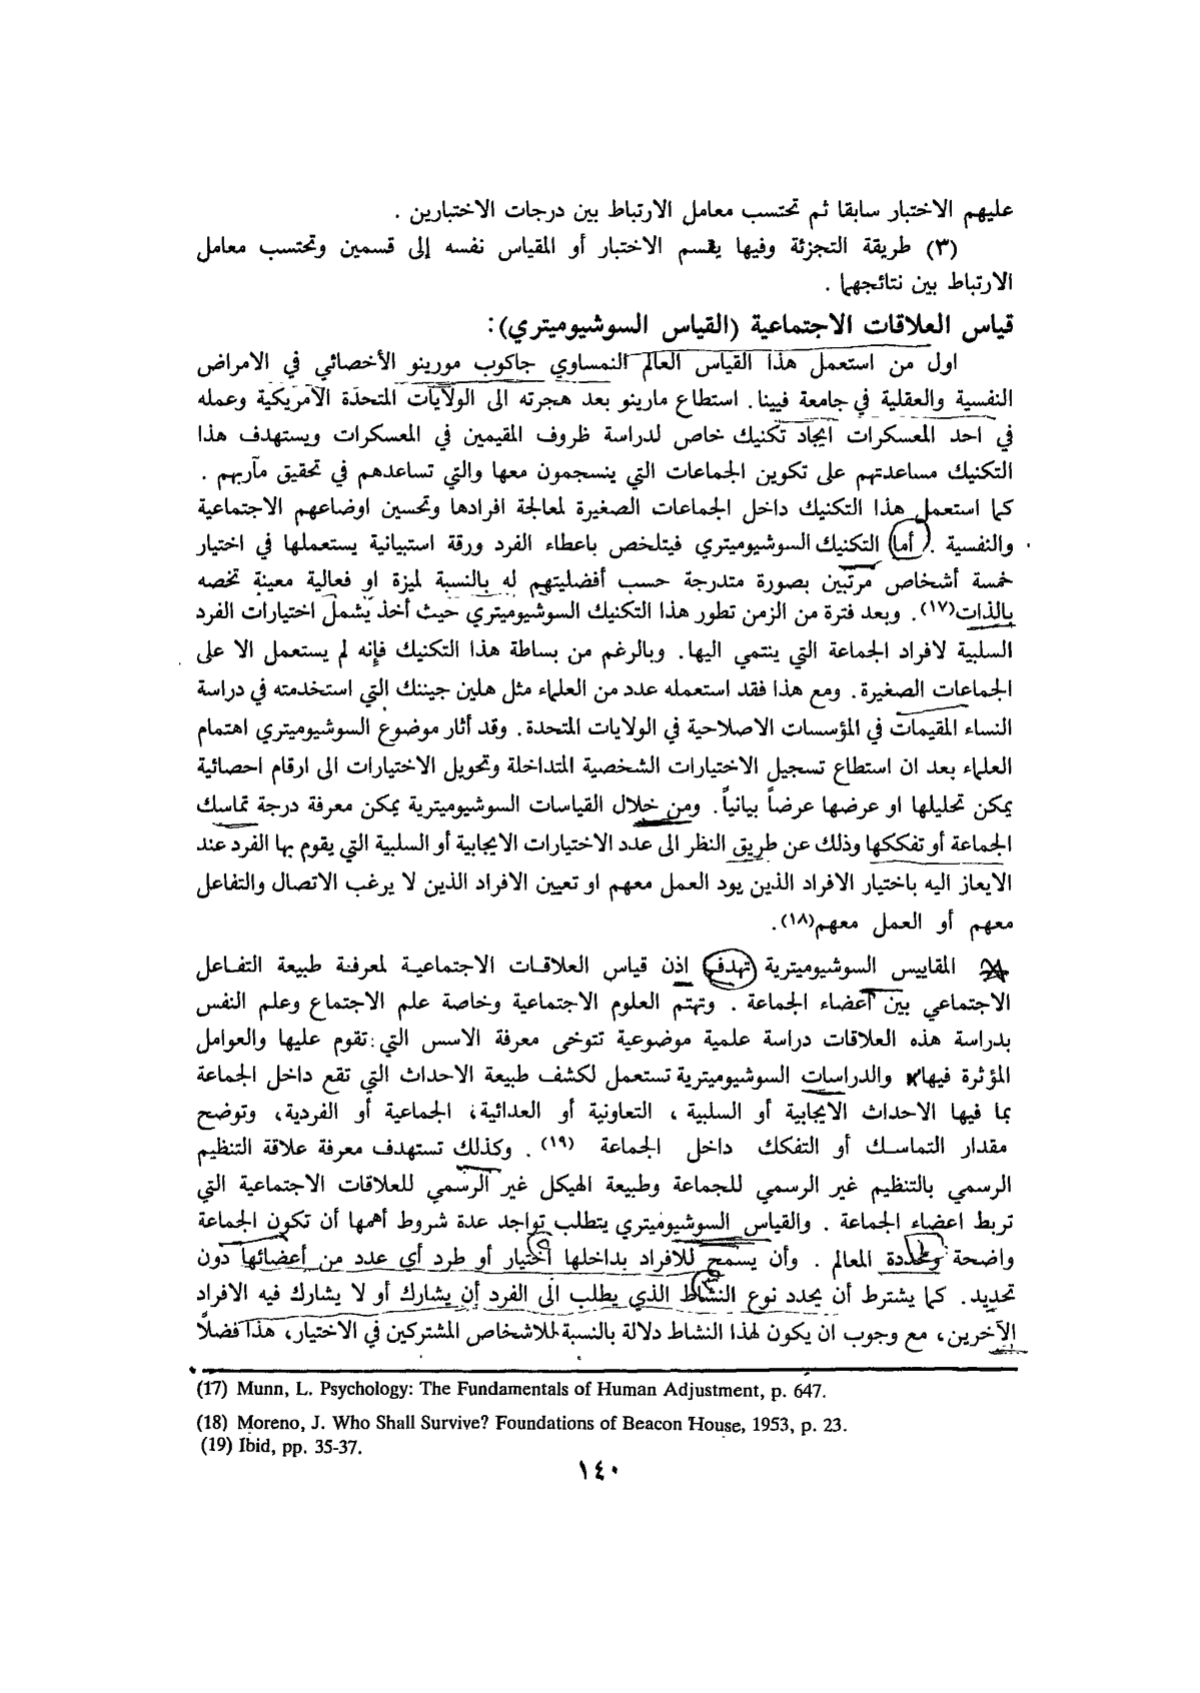 عليهم الاختبار سابقا ثم تحتسب معامل الارتباط بين درجات الاختبارين .
(٣) طريقة التجزئة وفيها يقسم الاختبار أو المقياس نفسه إلى قسمين وتحتسب معامل
الارتباط بين نتائجهما .
قياس العلاقات الاجتماعية (القياس السوشيوميتري):
اول من استعمل هذا القياس العالم النمساوي جاكوب مورينو الأخصائي في الامراض
النفسية والعقلية في جامعة فيينا. استطاع مارينو بعد هجرته الى الولايات المتحدة الامريكية وعمله
في احد المعسكرات ايجاد تكنيك خاص لدراسة ظروف المقيمين في المعسكرات ويستهدف هذا
التكنيك مساعدتهم على تكوين الجماعات التي ينسجمون معها والتي تساعدهم في تحقيق مآربهم .
كما استعمل هذا التكنيك داخل الجماعات الصغيرة لمعالجة افرادها وتحسين اوضاعهم الاجتماعية
والنفسية . أما التكنيك السوشيوميتري فيتلخص باعطاء الفرد ورقة استبيانية يستعملها في اختيار
خمسة أشخاص مرتبين بصورة متدرجة حسب أفضليتهم له بالنسبة لميزة او فعالية معينة تخصه
بالذات(١٧). وبعد فترة من الزمن تطور هذا التكنيك السوشيوميتري حيث أخذ يشمل اختيارات الفرد
السلبية لافراد الجماعة التي ينتمي اليها. وبالرغم من بساطة هذا التكنيك فإنه لم يستعمل الا على
الجماعات الصغيرة. ومع هذا فقد استعمله عدد من العلماء مثل هلين جيننك التي استخدمته في دراسة
النساء المقيمات في المؤسسات الاصلاحية في الولايات المتحدة. وقد أثار موضوع السوشيوميتري اهتمام
العلماء بعد ان استطاع تسجيل الاختيارات الشخصية المتداخلة وتحويل الاختيارات الى ارقام احصائية
يمكن تحليلها او عرضها عرضاً بيانياً. ومن خلال القياسات السوشيوميترية يمكن معرفة درجة تماسك
الجماعة أو تفككها وذلك عن طريق النظر الى عدد الاختيارات الايجابية أو السلبية التي يقوم بها الفرد عند
الايعاز اليه باختيار الافراد الذين يود العمل معهم او تعيين الافراد الذين لا يرغب الاتصال والتفاعل
معهم أو العمل معهم(١٨).
المقاييس السوشيوميترية تهدف اذن قياس العلاقات الاجتماعية لمعرفة طبيعة التفاعل
الاجتماعي بين أعضاء الجماعة . وتهتم العلوم الاجتماعية وخاصة علم الاجتماع وعلم النفس
بدراسة هذه العلاقات دراسة علمية موضوعية تتوخى معرفة الاسس التي تقوم عليها والعوامل
المؤثرة فيها والدراسات السوشيوميترية تستعمل لكشف طبيعة الاحداث التي تقع داخل الجماعة
بما فيها الاحداث الايجابية أو السلبية ، التعاونية أو العدائية، الجماعية أو الفردية، وتوضح
مقدار التماسك أو التفكك داخل الجماعة (١٩) . وكذلك تستهدف معرفة علاقة التنظيم
الرسمي بالتنظيم غير الرسمي للجماعة وطبيعة الهيكل غير الرسمي للعلاقات الاجتماعية التي
تربط اعضاء الجماعة . والقياس السوشيوميتري يتطلب تواجد عدة شروط أهمها أن تكون الجماعة
واضحة ومحددة المعالم . وأن يسمح للافراد بداخلها اختيار أو طرد أي عدد من أعضائها دون
تحديد. كما يشترط أن يحدد نوع النشاط الذي يطلب الى الفرد أن يشارك أو لا يشارك فيه الافراد
الآخرين، مع وجوب ان يكون لهذا النشاط دلالة بالنسبة للاشخاص المشتركين في الاختيار، هذا فضلاً
(17) Munn, L. Psychology: The Fundamentals of Human Adjustment, p. 647.
(18) Moreno, J. Who Shall Survive? Foundations of Beacon House, 1953, p. 23.
(19) Ibid, pp. 35-37.
١٤٠